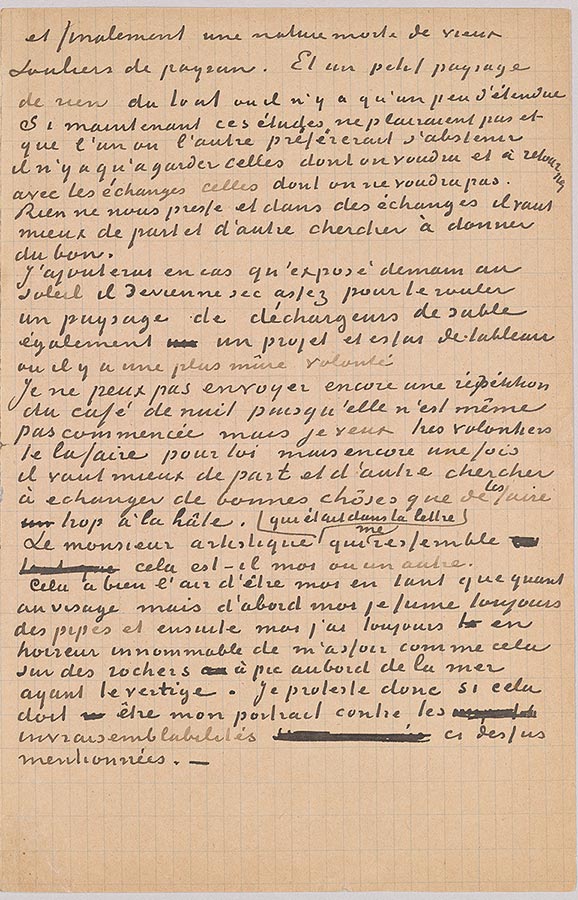 et finalement une nature morte de vieux
souliers de paysan. Et un petit paysage
de rien du tout ou il n'y a qu'un peu d'étendue
Si maintenant ces études ne plairaient pas et
que l'un ou l'autre préférerait s'abstenir
il n'y a qu'a garder celles dont on voudra et à retourner
avec les échanges celles dont on ne voudra pas.
Rien ne nous presse et dans des échanges il vaut
mieux de part et d'autre chercher à donner
du bon.
J'ajouterai en cas qu'exposé demain au
soleil il devienne sec assez pour le rouler
un paysage de déchargeurs de sable
également un projet et essai de tableau
ou il y a une plus mûre volonté
Je ne peux pas envoyer encore une répétition
du café de nuit puisqu'elle n'est même
pas commencée mais je veux tres volontiers
te la faire pour toi mais encore une fois
il vaut mieux de part et d'autre chercher
à echanger de bonnes chôses que de les faire
trop à la hâte. qui était dans ta lettre
Le monsieur artistique qui me ressemble
cela est-il moi ou un autre.
Cela a bien l'air d'être moi en tant que quant
au visage mais d'abord moi je fume toujours
des pipes et ensuite moi j'ai toujours en
horreur innommable de m'asseoir comme cela
sur des rochers à pic au bord de la mer
ayant le vertige. Je proteste donc si cela
doit être mon portrait contre les
invraisemblabilités ci dessus
mentionnées. —